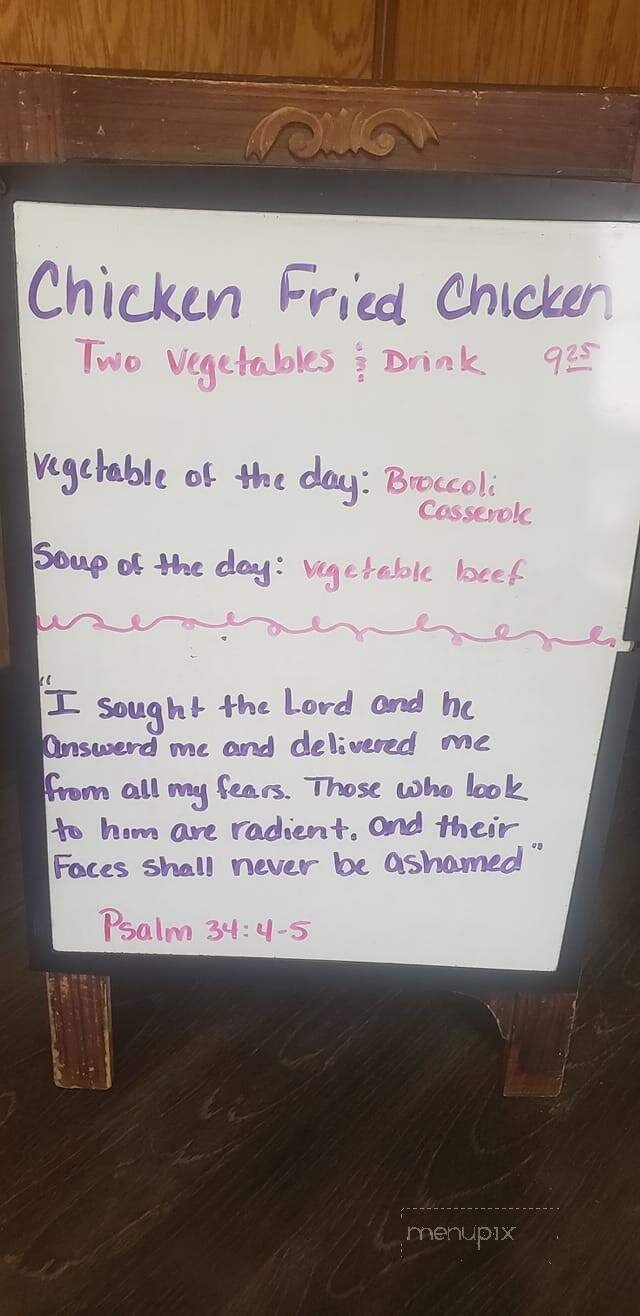 Chicken Fried Chicken
Two Vegetables & Drink 9.25
vegetable of the day: Broccoli
Casserole
Soup of the day: vegetable beef
"I sought the Lord and he
answerd me and delivered me
from all my fears. Those who look
to him are radient. and their
Faces shall never be ashamed"
Psalm 34:4-5
menupix